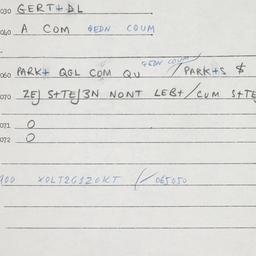 030 GERT+DL
040 A COM GEDN COUM
GEDN COUM
060 PARK+ QGL COM QU / PARK+S $
070 ZEJ S+TEJ3N NONT LEB+/CUM S+TE
071 0
072 0
900 XOLT2G1ZOKT / 065050